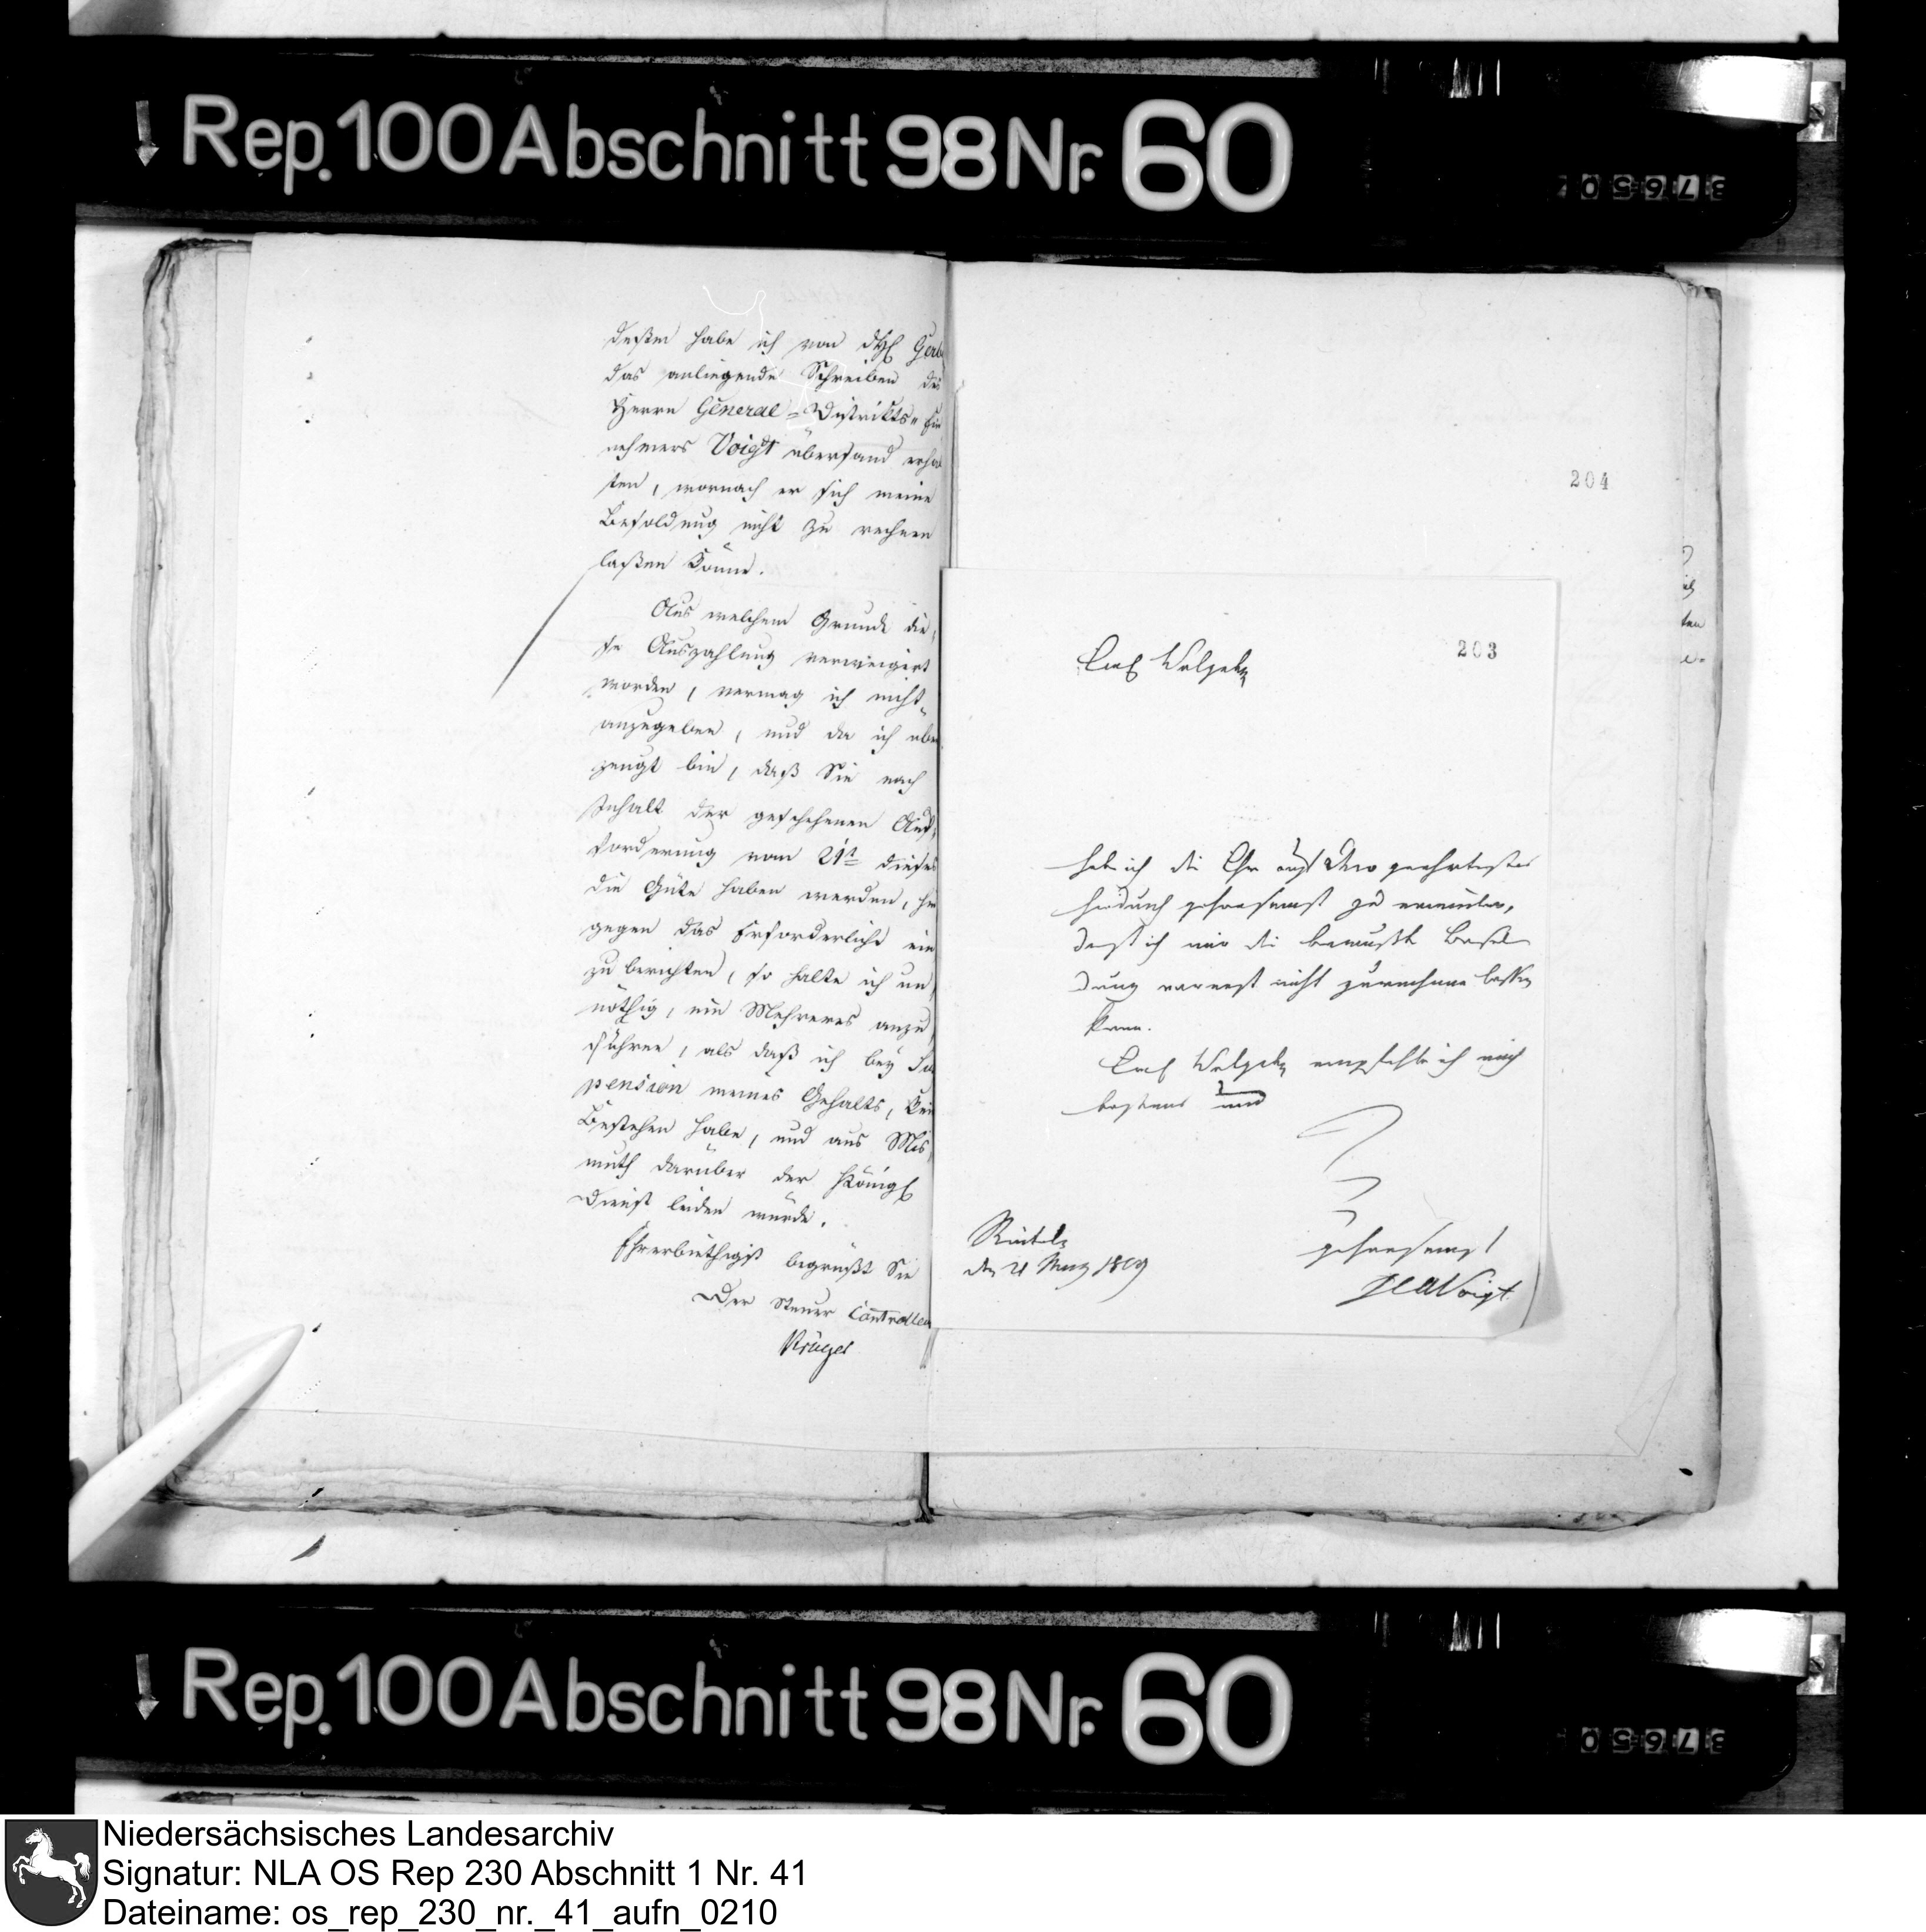 Rep. 100 Abschnitt 98 Nr. 60
37650
deßen habe ich von
das anliegende Schreiben des
Herrn General-Distrikts-Ein
nehmers Voigt übersand erhal
ten, wornach er sich meine
Besoldung nicht zu rechnen
laßen könne.
Aus welchem Grunde die-
se Auszahlung verweigert
worden, vermag ich nicht
anzugeben, und da ich über
zeugt bin, daß Sie nach
Inhalt der geschehenen Auf-
forderung vom 21t dieses
die Güte haben werden, hin
gegen das Erforderliche ein
zu berichten, so halte ich un
nöthig, ein Mehreres anzu
führen, als daß ich bey Sus
pension meines Gehalts, kein
Bestehen habe, und aus Mis
muth darüber der Königl
Dienst leiden würde.
Ehrerbiethigst begrüßt Sie
Der Steuer Controlleur
Krüger
204
203
Ew Wolgeb
habe ich die Ehre auf Dero geehrtestes
hiedurch gehorsamst zu erwiedern,
daß ich mir die bewußte Besol
dung vorerst nicht zurechnen lassen
kann.
Ew Wolgeb empfehle ich mich
bestens und
gehorsamst
Voigt
Rinteln
den 21 März 1809
Rep. 100 Abschnitt 98 Nr. 60
37650
Niedersächsisches Landesarchiv
Signatur: NLA OS Rep 230 Abschnitt 1 Nr. 41
Dateiname: os_rep_230_nr._41_aufn_0210